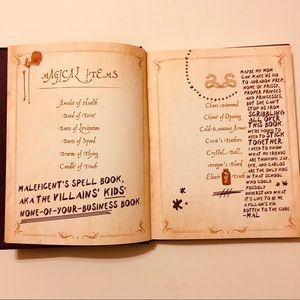 MAGICAL ITEMS
Boots of Levitation
Boots of Speed
Broom of Flying
Candle of Truth
MALEFICENT'S SPELL BOOK,
AKA THE VILLAINS' KIDS'
NONE-OF-YOUR-BUSINESS BOOK.
Chime of Opening
Crow's Feathers
Crystal Ball
Dragon's Blood
Elixir Truth
MAYBE MY MOM
CAN MAKE US GO
TO AURADON PREP,
HOME OF PRISSY,
PROPER PRINCES
AND PRINCESSES,
BUT SHE CAN'T
STOP US FROM
SCRIBBLING
ALL OVER
THIS BOOK.
WE'RE GOING TO
NEED TO STICK
TOGETHER.
I NEED TO KNOW
WHAT MY FRIENDS
ARE THINKING. JAY,
EVIE, AND CARLOS
ARE THE ONLY KIDS
IN THAT SCHOOL
WHO COULD
POSSIBLY
UNDERSTAND
WHAT IT'S LIKE TO BE
A VILLAIN'S KID.
ROTTEN TO THE CORE.
-MAL